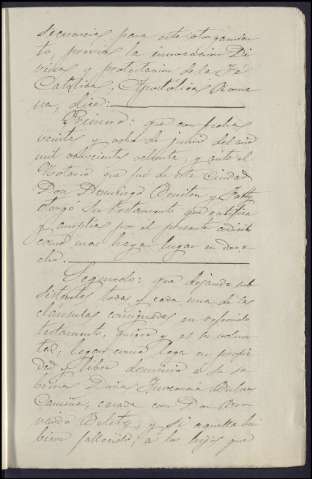 secuencia para este otorgamien
to, previa la invocacion Di
vina y protestacion de la Fé
Catolica, Apostolica Roma
na, dice:
Primero: que en fecha
veinte y ocho de junio del año
mil ochocientos setenta, y ante el
Notario que fué de esta Ciudad
Don Domingo Benitez y
otorgó su testamento que ratifica
y amplia por el presente codicilo
cuando mas haya lugar en dere
cho.
Segundo: que dejando sub
sistentes todas y cada una de las
clausulas consignadas en referido
testamento, quiere y es su volun
tad, legar como lega en propie
dad y libre dominio a su so
brina Doña
casada con Don
y si aquella hu
biere fallecido, a los hijos que